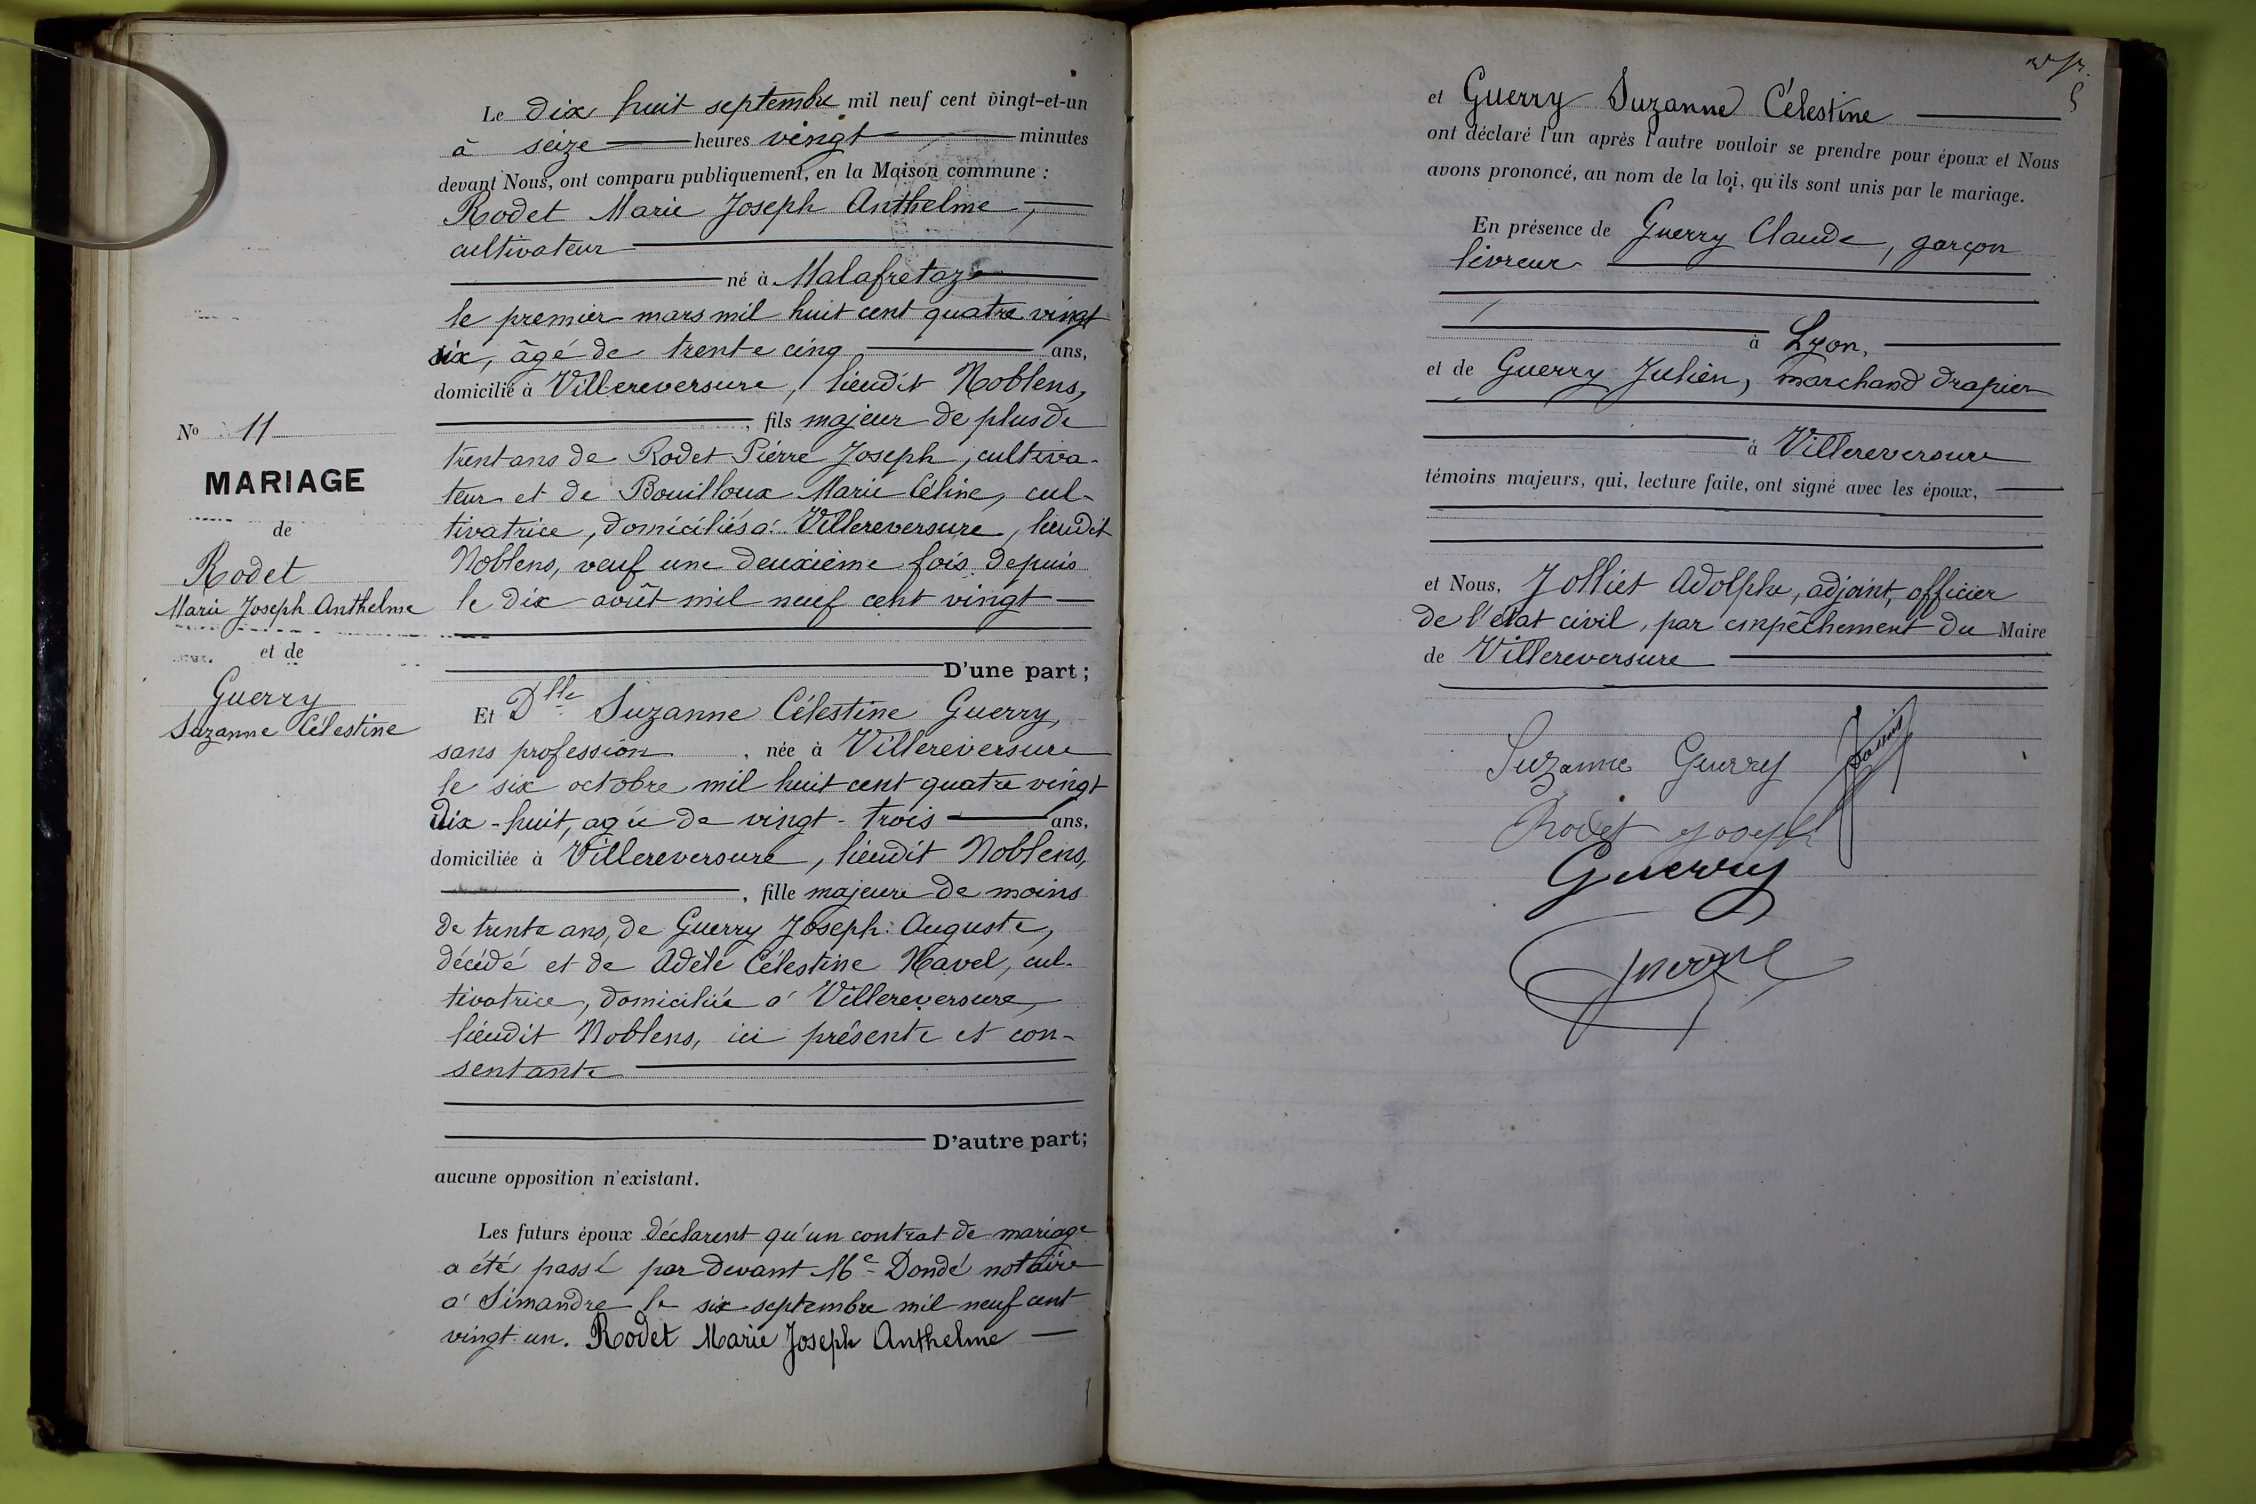 Le dix huit septembre mil neuf cent vingt-et-un
à seize heures vingt minutes
devant Nous, ont comparu publiquement, en la Maison commune :
Rodet Marie Joseph Anthelme,
cultivateur
né à Malafretaz
le premier mars mil huit cent quatre vingt
six, âgé de trente cinq ans,
domicilié à Villereversure, lieudit Noblens,
, fils majeur de plus de
trent ans de Rodet Pierre Joseph, cultiva-
teur et de Bouilloux Marie Céline, cul-
tivatrice, domiciliés à Villereversure, lieudit
Noblens, veuf une deuxième fois depuis
le dix août mil neuf cent vingt
D'une part ;
Et Dlle Suzanne Célestine Guerry,
sans profession, née à Villereversure
le six octobre mil huit cent quatre vingt
dix-huit, agée de vingt-trois ans,
domiciliée à Villereversure, lieudit Noblens,
, fille majeure de moins
de trente ans, de Guerry Joseph Auguste,
décédé et de Adèle Célestine Navel, cul-
tivatrice, domiciliée à Villereversure,
lieudit Noblens, ici présente et con-
sentante
D'autre part;
aucune opposition n'existant.
Les futurs époux déclarent qu'un contrat de mariage
a été passé par devant Me Dondé notaire
à Simandre le six septembre mil neuf cent
vingt un. Rodet Marie Joseph Anthelme
No 11
MARIAGE
de
Rodet
Marie Joseph Anthelme
et de
Guerry
Suzanne Célestine
et Guerry Suzanne Célestine
ont déclaré l'un après l'autre vouloir se prendre pour époux et Nous
avons prononcé, au nom de la loi, qu'ils sont unis par le mariage.
En présence de Guerry Claude, garçon
livreur
à Lyon,
et de Guerry Julien, marchand drapier
à Villereversure
témoins majeurs, qui, lecture faite, ont signé avec les époux,
et Nous, Jolliet Adolphe, adjoint, officier
de l'état civil, par empêchement du Maire
de Villereversure
Suzanne Guerry
Rodet Joseph
Guerry
Guerry